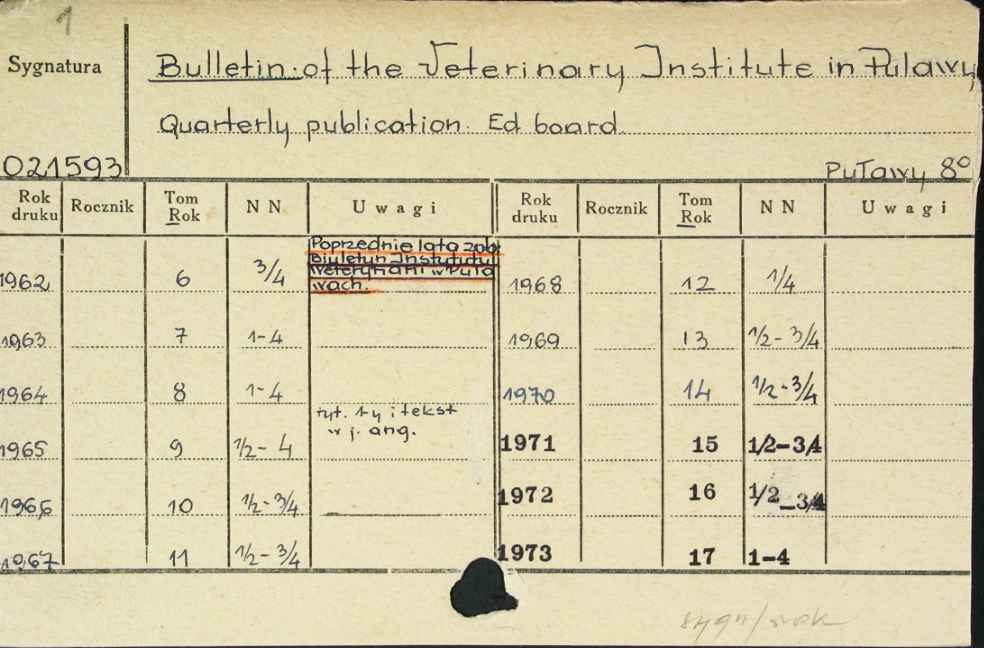 1
Sygnatura
Bulletin of the Veterinary Institute in Puławy
Quarterly publication. Ed board.
021593
Puławy 8°
Rok druku Rocznik Tom Rok N N Uwagi Rok druku Rocznik Tom Rok N N Uwagi
Poprzednie lata zob.
Biuletyn Instytutu
Weterynarii w Puła
wach.
1962 6 3/4 1968 12 1/4
1963 7 1-4 1969 13 1/2-3/4
1964 8 1-4 1970 14 1/2-3/4
tyt. i tekst
w j. ang.
1965 9 1/2-4 1971 15 1/2-3/4
1966 10 1/2-3/4 1972 16 1/2-3/4
1967 11 1/2-3/4 1973 17 1-4